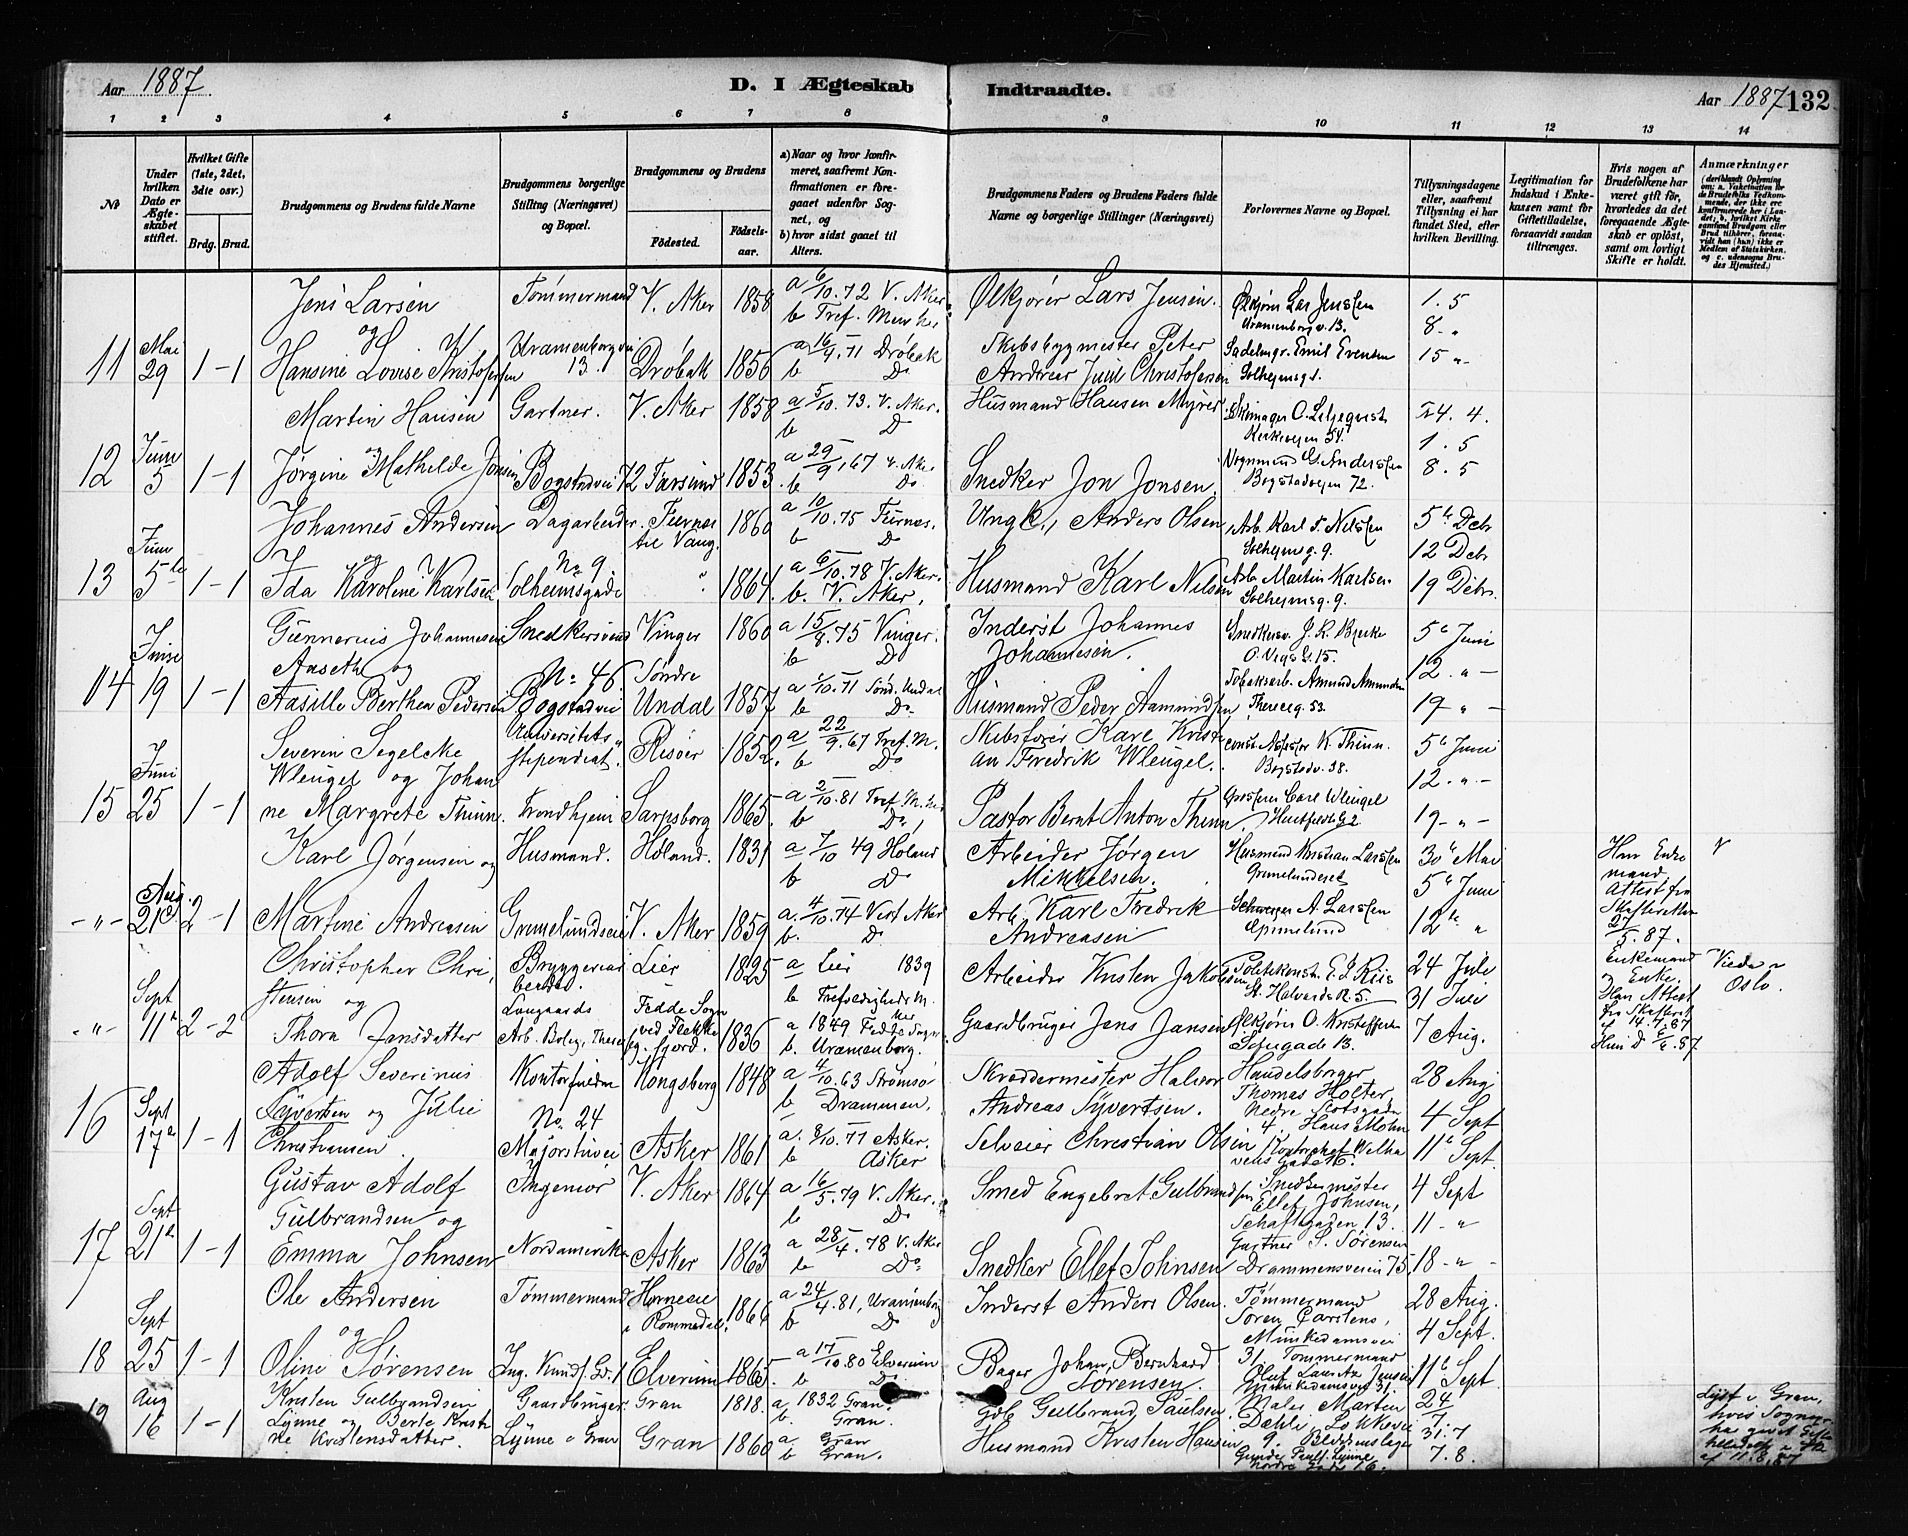 Aar 1887.
D. I Ægteskab Indtraadte.
Aar 1887 132
1 2 3 4 5 6 7 8 9 10 11 12 13 14
No
Under hvilken Dato er Ægteskabet stiftet.
Hvilket Gifte (1ste, 2det, 3die osv.)
Brdg. Brud.
Brudgommens og Brudens fulde Navne
Brudgommens borgerlige Stilling (Næringsvei) og Bopæl.
Brudgommens og Brudens
Fødested.
Fødselsaar.
a) Naar og hvor konfirmeret, saafremt Konfirmationen er foregaaet udenfor Sognet, og
b) hvor sidst gaaet til Alters.
Brudgommens Faders og Brudens Faders fulde Navne og borgerlige Stillinger (Næringsvei)
Forlovernes Navne og Bopæl.
Tillysningsdagene eller, saafremt Tillysning ei har fundet Sted, efter hvilken Bevilling.
Legitimation for Indskud i Enkekassen samt for Giftetilladelse, forsaavidt saadan tiltrænges.
Hvis nogen af Brudefolkene har været gift før, hvorledes da det foregaaende Ægteskab er opløst, samt om lovligt Skifte er holdt.
Anmærkninger
Jens Larsen Tømmermand V. Aker 1858 a 6/10.72 V. Aker Ølkjører Lars Jensen. Ølkjører Lars Jenssen 1. 5
b Tref. Uranienborgv. 13. 8 - "
11 Mai 29 1 - 1 og Hansine Lovise Kristofersen Uranienborgvei 13. Drøbak 1856 a 16/4.71 Drøbak Skibsbygmester Peter Sadelmgr. Emil Evensen 15 " -
b Do Andreas Juul Christofersen Solhejmsg 1.
Martin Hansen Gartner. V. Aker 1858 a 5/10.73. V. Aker. Husmand Hansen Myrer O. Liljeqvist 24. 4.
b D Kirkevejen 54. 1. 5
12 Juni 5 1 - 1 Jørgine Mathilde Jonsen Bogstadvei 72 Farsund 1853 a 29/9.67 V. Aker Snedker Jon Jonsen. Vognmand G. Anderssen 8. 5
b Do Bogstadvejen 72.
Johannes Andersen Dagarbeider. Furnes til Vang. 1860 a 10/10.75 Furnes. Ungk., Anders Olsen Arb. Karl F. Nilsen 5te Debr
b D Solhejmsg. 9. 12 Debr
13 Juni 5te 1 - 1 og Ida Karoline Karlsen No 9 Solheimsgade " 1864. a 6/10.78 V. Aker. Husmand Karl Nilsen Arb. Martin Karlsen 19 Debr.
b. V. Aker, Solhejmsg. 9.
Gunnerius Johannesen Snedkersvend Vinger 1860 a 15/8.75 Vinger. Inderst Johannes Snedkersv. J. R. Bjerke 5te Juni
Aaseth og No 46 b Do Johannesen. O. Vogs G. 15. 12. " -
14 Juni 19 1 - 1 Aasille Berthea Pedersen Bogstadvei Søndre Undal 1857 a /10.71 Sønd. Undal Husmand Peder Aamundsen Fabeksarb. Amund Amundsen 19 - " -
b Do Theresg. 53.
Severin Segelcke Universitets Risøer 1852. a 22/9.67 Tref. M. Skibsfører Karl Kristi const. Assesor K. Thinn. 5te Juni
Wleügel og Johan stipendiat. b Do an Fredrik Wleugel. Bogstadv. 38. 12. " -
15 Juni 25 1 - 1 ne Margrete Thinn. Trondhjem Sarpsborg 1865. a 2/10.81 Tref. M. Pastor Bernt Anton Thinn Carl Wleugel 19 - " -
b Do, Huitfeldts G 2.
Karl Jørgensen og Husmand. Høland. 1831 a 7/10 49 Høland Arbeider Jørgen Husmand Kristian Larssen 30te Mai Han Enke V
b Do Mikkelsen. Grimelunderet 5te Juni mand, Attest fra
- " - Aug. 21 2 - 1 Martine Andreasen Grimelundseie V. Aker 1859 a. 4/10.74 Vest Aker Arb. Karl Fredrik A. Larssen 12te " Skifteretten 27/5.87.
b. D. Andreasen Grimelund
Christopher Chri Bryggeriar Lier 1825 a Lier 1839 Arbeider Kristen Jakobsen Politikonst. E. J. Riis 24 Juli Enkemand Viede i
stensen og beider. b Trefoldigheds M. St. Halvards R. 5. 31 Juli og Enke. Oslo.
- " - Sept 11te 2 - 2 Thora Jensdatter Langaards Arb. Bolig, Fedde Sogn ved Flekkefjord. 1836 a 1849 Fedde Sogn Gaardbruger Jens Jansen Ølkjører O. Kristoffersen 7 Aug. Han Attest fra Skifteret af 14.7.87
b. Uranienborg. 13. Hun D 1/6.87
Adolf Severinus Kontorfuldm Kongsberg 1848 a 4/10.63 Strømsø Skræddermester Halvor Handelsborger 28 Aug
Syvertsen og Julie No. 24 b Drammen. Andreas Syvertsen. Thomas Holter, Nedre Slotsgade 4 Sept
16 Sept 17de 1 - 1 Christiansen. Majorstuvei Asker 1861 a. 8/10.77 Asker. Selveier Christian Olsen 4. Hans Mohn Welha 11te Sept
b Asker vens Gade 16.
Gustav Adolf Ingeniør V. Aker 1864 a 16/5.79 V. Aker. Smed Engebret Gulbrandsen Snedkermester 4 Sept
Gulbrandsen og b Do Ellef Johnsen, Schaftsgaden 13. 11 - "
17 Sept 21de 1 - 1 Emma Johnsen Nordamerika Asker 1863 a 28/4.78 V. Aker Snedker Ellef Johnsen Gartner S. Sørensen 18 - " -
b Do Drammensveien 75.
Ole Andersen Tømmermand Romedal. 1866 a 24/4.81, Uranienborg Inderst Anders Olsen Tømmermand 28 Aug.
b Do Soren Carstens, Munkedamsvei 4 Sept.
18 Sept 25 1 - 1 og Oline Sørensen Ing. Elverum 1865. a 17/10.80 Elverum Bager Johan Bernhard 31, Tømmermand 11te Sept
b Do Sørensen. Oluf Jensen Munkedamsvei 31.
19 Aug 16 1 - 1 Kristen Gulbrandsen Gaardbruger Gran 1818. a 1832 Gran. Gdb Gulbrand Paulsen Maler Martin 24/7
Lynne og Berte Kristi b. Gran. Dæhli, Løkkevei 31.7
ne Kristensdatter. Lynne i Gran Gran 1860 a Gran Husmand Kristen Hansen 9. Blikkenslager 7.8.
b Gran. Gunder Paulf. Lynne Nordre Gade 16.
Lyst i Gran, hvis Sogne
af 11.8.87